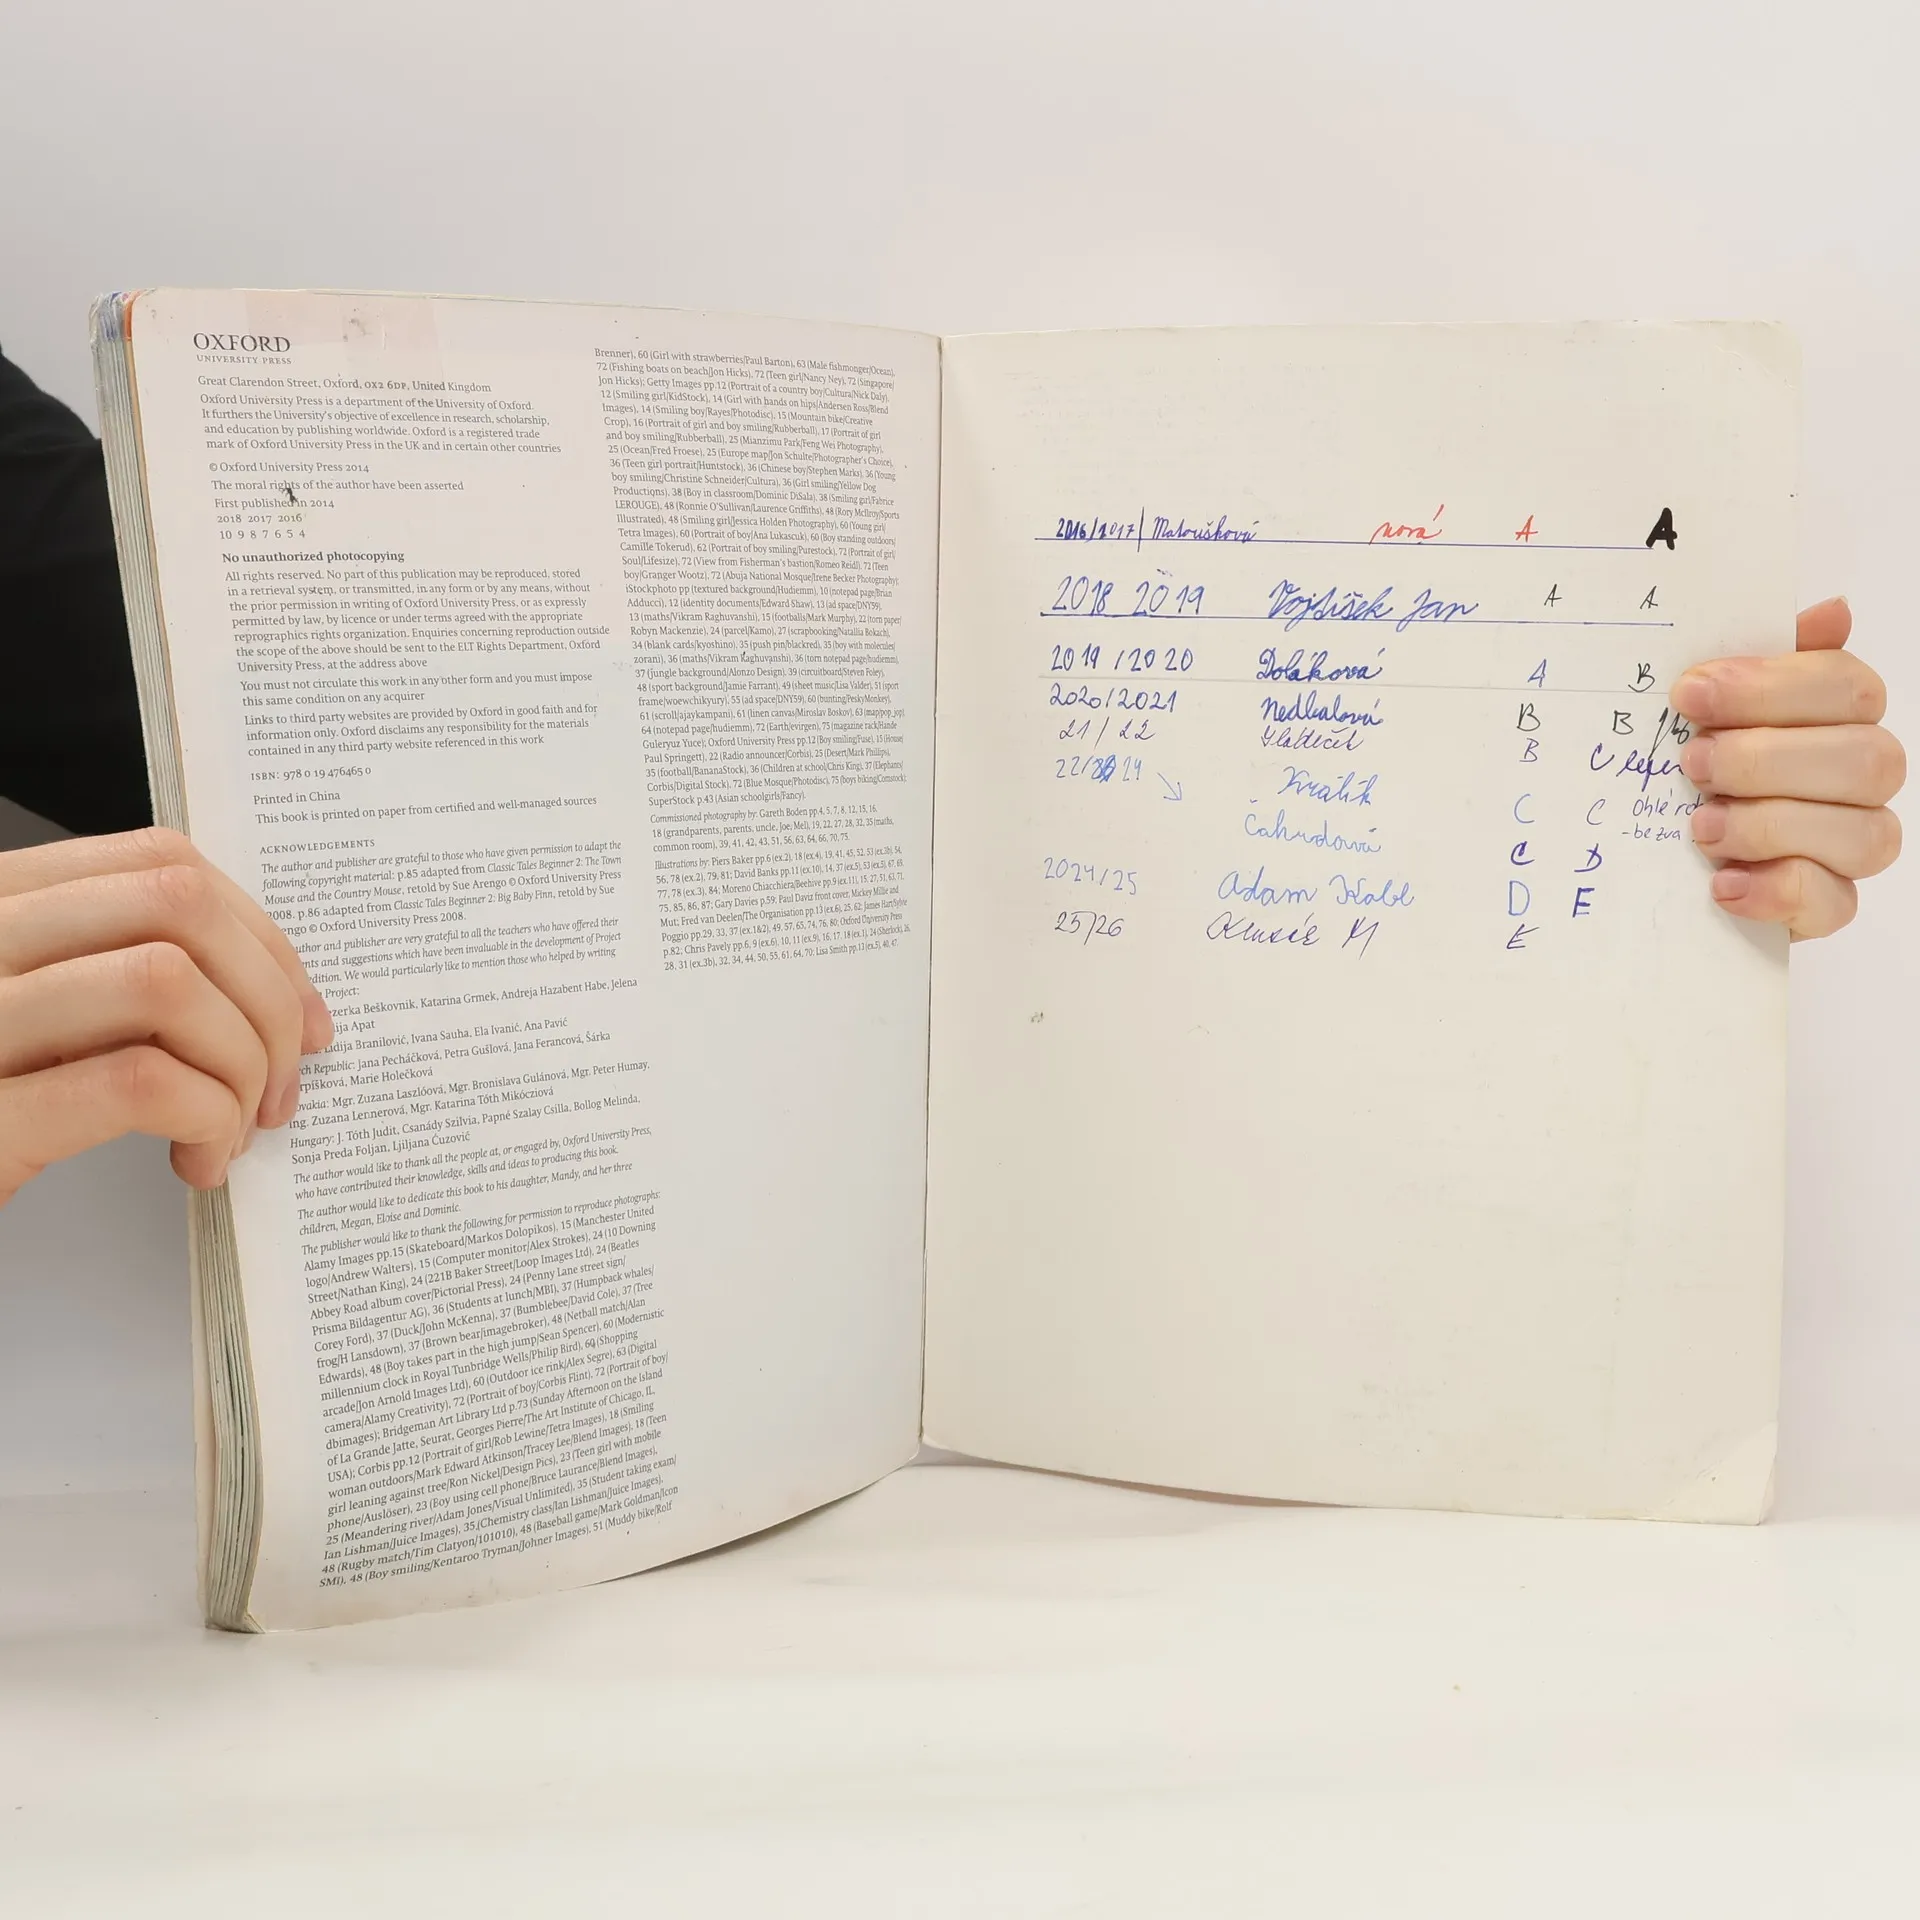 OXFORD
UNIVERSITY PRESS
Great Clarendon Street, Oxford, OX2 6DP, United Kingdom
Oxford University Press is a department of the University of Oxford.
It furthers the University's objective of excellence in research, scholarship,
and education by publishing worldwide. Oxford is a registered trade
mark of Oxford University Press in the UK and in certain other countries
© Oxford University Press 2014
The moral rights of the author have been asserted
First published in 2014
2018 2017 2016
10 9 8 7 6 5 4
No unauthorized photocopying
All rights reserved. No part of this publication may be reproduced, stored
in a retrieval system, or transmitted, in any form or by any means, without
the prior permission in writing of Oxford University Press, or as expressly
permitted by law, by licence or under terms agreed with the appropriate
reprographics rights organization. Enquiries concerning reproduction outside
the scope of the above should be sent to the ELT Rights Department, Oxford
University Press, at the address above
You must not circulate this work in any other form and you must impose
this same condition on any acquirer
Links to third party websites are provided by Oxford in good faith and for
information only. Oxford disclaims any responsibility for the materials
contained in any third party website referenced in this work
ISBN: 978 0 19 476465 0
Printed in China
This book is printed on paper from certified and well-managed sources
ACKNOWLEDGEMENTS
The author and publisher are grateful to those who have given permission to adapt the
following copyright material: p.85 adapted from Classic Tales Beginner 2: The Town
Mouse and the Country Mouse, retold by Sue Arengo © Oxford University Press
2008. p.86 adapted from Classic Tales Beginner 2: Big Baby Finn, retold by Sue
engo © Oxford University Press 2008.
uthor and publisher are very grateful to all the teachers who have offered their
nts and suggestions which have been invaluable in the development of Project
dition. We would particularly like to mention those who helped by writing
Project:
ezerka Beškovnik, Katarina Grmek, Andreja Hazabent Habe, Jelena
ija Apat
Lidija Branilović, Ivana Sauha, Ela Ivanić, Ana Pavić
ch Republic: Jana Pecháčková, Petra Gušlová, Jana Ferancová, Šárka
rpíšková, Marie Holečková
ovakia: Mgr. Zuzana Laszlóová, Mgr. Bronislava Gulánová, Mgr. Peter Humay,
ing. Zuzana Lennerová, Mgr. Katarina Tóth Mikócziová
Hungary: J. Tóth Judit, Csanády Szilvia, Papné Szalay Csilla, Bollog Melinda,
Sonja Preda Foljan, Ljiljana Ćuzović
The author would like to thank all the people at, or engaged by, Oxford University Press,
who have contributed their knowledge, skills and ideas to producing this book.
The author would like to dedicate this book to his daughter, Mandy, and her three
children, Megan, Eloise and Dominic.
The publisher would like to thank the following for permission to reproduce photographs:
Alamy Images pp.15 (Skateboard/Markos Dolopikos), 15 (Manchester United
logo/Andrew Walters), 15 (Computer monitor/Alex Strokes), 24 (10 Downing
Street/Nathan King), 24 (221B Baker Street/Loop Images Ltd), 24 (Beatles
Abbey Road album cover/Pictorial Press), 24 (Penny Lane street sign/
Prisma Bildagentur AG), 36 (Students at lunch/MBI), 37 (Humpback whales/
Corey Ford), 37 (Duck/John McKenna), 37 (Bumblebee/David Cole), 37 (Tree
frog/H Lansdown), 37 (Brown bear/imagebroker), 48 (Netball match/Alan
Edwards), 48 (Boy takes part in the high jump/Sean Spencer), 60 (Modernistic
millennium clock in Royal Tunbridge Wells/Philip Bird), 60 (Shopping
arcade/Jon Arnold Images Ltd), 60 (Outdoor ice rink/Alex Segre), 63 (Digital
camera/Alamy Creativity), 72 (Portrait of boy/Corbis Flint), 72 (Portrait of boy/
dbimages); Bridgeman Art Library Ltd p.73 (Sunday Afternoon on the Island
of La Grande Jatte, Seurat, Georges Pierre/The Art Institute of Chicago, IL,
USA); Corbis pp.12 (Portrait of girl/Rob Lewine/Tetra Images), 18 (Smiling
woman outdoors/Mark Edward Atkinson/Tracey Lee/Blend Images), 18 (Teen
girl leaning against tree/Ron Nickel/Design Pics), 23 (Teen girl with mobile
phone/Auslöser), 23 (Boy using cell phone/Bruce Laurance/Blend Images),
25 (Meandering river/Adam Jones/Visual Unlimited), 35 (Student taking exam/
Ian Lishman/Juice Images), 35 (Chemistry class/Ian Lishman/Juice Images),
48 (Rugby match/Tim Clatyon/101010), 48 (Baseball game/Mark Goldman/Icon
SMI), 48 (Boy smiling/Kentaroo Tryman/Johner Images), 51 (Muddy bike/Rolf
Brenner), 60 (Girl with strawberries/Paul Barton), 63 (Male fishmonger/Ocean),
72 (Fishing boats on beach/Jon Hicks), 72 (Teen girl/Nancy Ney), 72 (Singapore/
Jon Hicks); Getty Images pp.12 (Portrait of a country boy/Cultura/Nick Daly),
12 (Smiling girl/KidStock), 14 (Girl with hands on hips/Andersen Ross/Blend
Images), 14 (Smiling boy/Rayes/Photodisc), 15 (Mountain bike/Creative
Crop), 16 (Portrait of girl and boy smiling/Rubberball), 17 (Portrait of girl
and boy smiling/Rubberball), 25 (Mianzimu Park/Feng Wei Photography),
25 (Ocean/Fred Froese), 25 (Europe map/Jon Schulte/Photographer's Choice),
36 (Teen girl portrait/Huntstock), 36 (Chinese boy/Stephen Marks), 36 (Young
boy smiling/Christine Schneider/Cultura), 36 (Girl smiling/Yellow Dog
Productions), 38 (Boy in classroom/Dominic DiSala), 38 (Smiling girl/Fabrice
LEROUGE), 48 (Ronnie O'Sullivan/Laurence Griffiths), 48 (Rory McIlroy/Sports
Illustrated), 48 (Smiling girl/Jessica Holden Photography), 60 (Young girl/
Tetra Images), 60 (Portrait of boy/Ana Lukascuk), 60 (Boy standing outdoors/
Camille Tokerud), 62 (Portrait of boy smiling/Purestock), 72 (Portrait of girl/
Soul/Lifesize), 72 (View from Fisherman's bastion/Romeo Reidl), 72 (Teen
boy/Granger Wootz), 72 (Abuja National Mosque/Irene Becker Photography);
iStockphoto pp (textured background/Hudiemm), 10 (notepad page/Brian
Adducci), 12 (identity documents/Edward Shaw), 13 (ad space/DNY59),
13 (maths/Vikram Raghuvanshi), 15 (footballs/Mark Murphy), 22 (torn paper/
Robyn Mackenzie), 24 (parcel/Kamo), 27 (scrapbooking/Natallia Bokach),
34 (blank cards/kyoshino), 35 (push pin/blackred), 35 (boy with molecules/
zorani), 36 (maths/Vikram Raghuvanshi), 36 (torn notepad page/hudiemm),
37 (jungle background/Alonzo Design), 39 (circuitboard/Steven Foley),
48 (sport background/Jamie Farrant), 49 (sheet music/Lisa Valder), 51 (sport
frame/woewchikyury), 55 (ad space/DNY59), 60 (bunting/PeskyMonkey),
61 (scroll/ajaykampani), 61 (linen canvas/Miroslav Boskov), 63 (map/pop_jop),
64 (notepad page/hudiemm), 72 (Earth/evirgen), 75 (magazine rack/Hande
Guleryuz Yuce); Oxford University Press pp.12 (Boy smiling/Fuse), 15 (House/
Paul Springett), 22 (Radio announcer/Corbis), 25 (Desert/Mark Phillips),
35 (football/BananaStock), 36 (Children at school/Chris King), 37 (Elephants/
Corbis/Digital Stock), 72 (Blue Mosque/Photodisc), 75 (boys biking/Comstock);
SuperStock p.43 (Asian schoolgirls/Fancy).
Commissioned photography by: Gareth Boden pp.4, 5, 7, 8, 12, 15, 16,
18 (grandparents, parents, uncle, Joe, Mel), 19, 22, 27, 28, 32, 35 (maths,
common room), 39, 41, 42, 43, 51, 56, 63, 64, 66, 70, 75.
Illustrations by: Piers Baker pp.6 (ex.2), 18 (ex.4), 19, 41, 45, 52, 53 (ex.3b), 54,
56, 78 (ex.2), 79, 81; David Banks pp.11 (ex.10), 14, 37 (ex.5), 53 (ex.5), 67, 69,
77, 78 (ex.3), 84; Moreno Chiacchiera/Beehive pp.9 (ex.11), 15, 27, 51, 63, 71,
75, 85, 86, 87; Gary Davies p.59; Paul Daviz front cover, Mickey Millie and
Mut; Fred van Deelen/The Organisation pp.13 (ex.6), 25, 62; James Hart/Sylvie
Poggio pp.29, 33, 37 (ex.1&2), 49, 57, 65, 74, 76, 80; Oxford University Press
p.82; Chris Pavely pp.6, 9 (ex.6), 10, 11 (ex.9), 16, 17, 18 (ex.1), 24 (Sherlock), 26,
28, 31 (ex.3b), 32, 34, 44, 50, 55, 61, 64, 70; Lisa Smith pp.13 (ex.5), 40, 47.
2016/2017 Matoušková nová A A
2018 2019 Vojtíšek Jan A A
2019/2020 Doláková A B
2020/2021 Nedbalová B B
21/22 B C
22/ 24 Králík C C
Čahudová C D
2024/25 Adam Kabl D E
25/26 M E